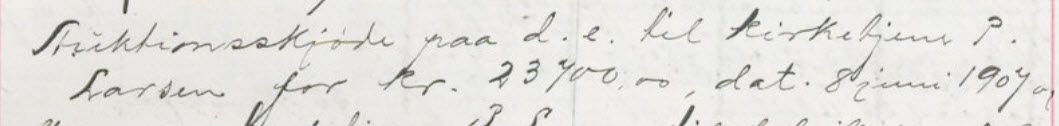 Auktionsskjøde paa d. e. til kirketjener P.
Larsen for kr. 23700.00, dat. 8 juni 1907 og